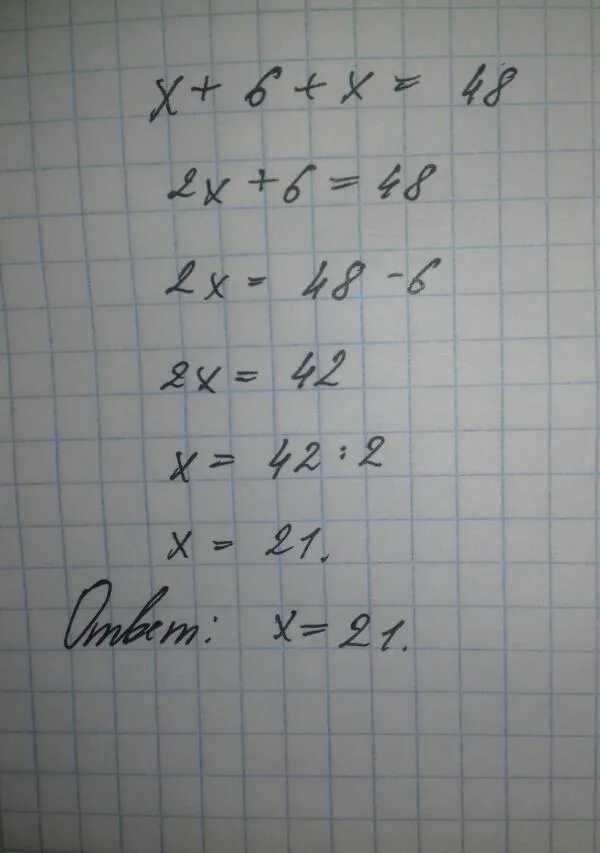 x + 6 + x = 48
2x + 6 = 48
2x = 48 - 6
2x = 42
x = 42 : 2
x = 21.
Ответ: x = 21.